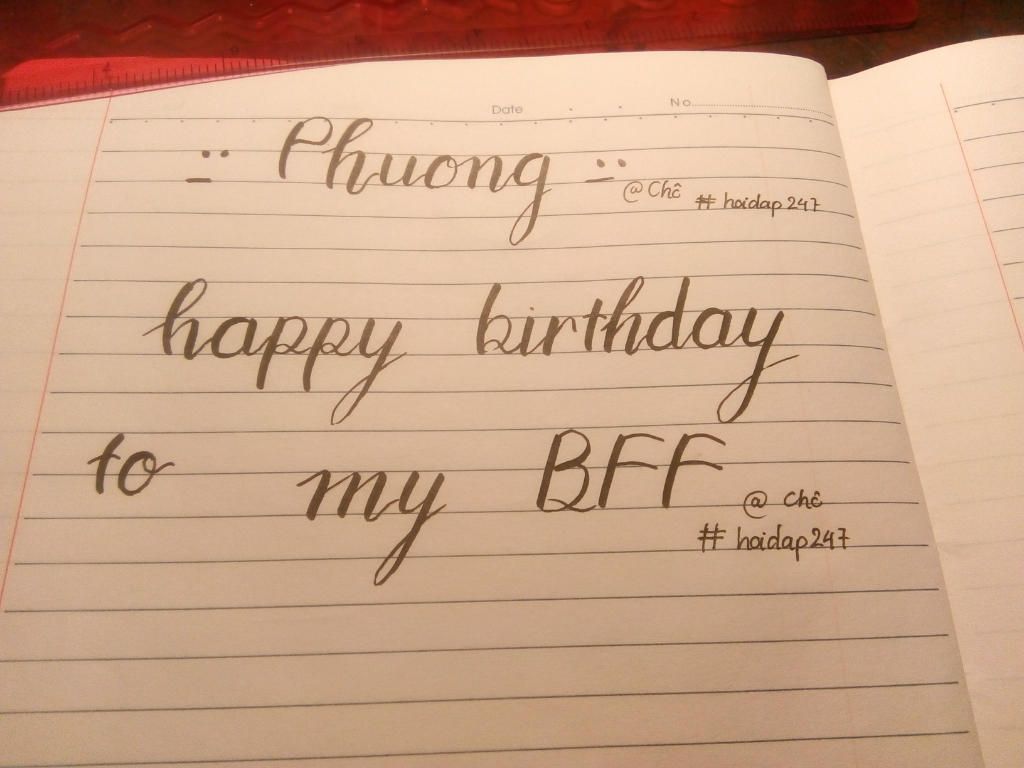 Date No
Phuong @ Chê # hoidap247
happy birthday
to my BFF @ chê
# hoidap247